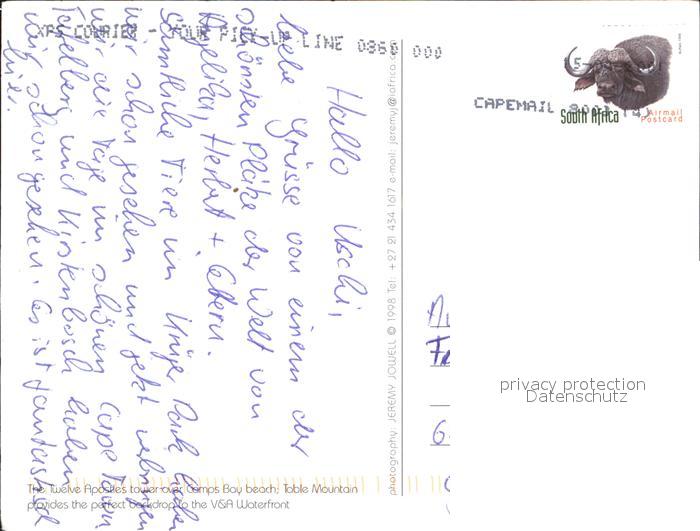 XPS COURIER - YOUR PICK-UP LINE 0860 000
CAPEMAIL
South Africa
Airmail
Postcard
Hallo Uschi,
liebe Grüsse von einem der
schönsten Plätze der Welt von
Herbert + Eltern.
Sämtliche Tiere im Krüger Park haben
wir schon gesehen und jetzt verbringen
wir die Tage im schönen Cape Town
Tafelberg und Kirstenbosch haben
wir schon gesehen. Es ist fantastisch
hier.
photography: JEREMY JOWELL © 1998 Tel: +27 21 434 1617 e-mail: jeremy@iafrica.c
privacy protection
Datenschutz
The Twelve Apostles tower over Camps Bay beach; Table Mountain
provides the perfect backdrop to the V&A Waterfront